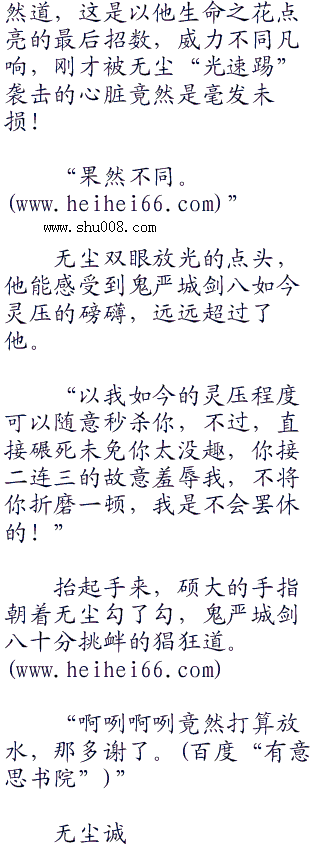 然道，这是以他生命之花点
亮的最后招数，威力不同凡
响，刚才被无尘“光速踢”
袭击的心脏竟然是毫发未
损！
“果然不同。
(www.heihei66.com)”
www.shu008.com
无尘双眼放光的点头，
他能感受到鬼严城剑八如今
灵压的磅礴，远远超过了
他。
“以我如今的灵压程度
可以随意秒杀你，不过，直
接碾死未免你太没趣，你接
二连三的故意羞辱我，不将
你折磨一顿，我是不会罢休
的！”
抬起手来，硕大的手指
朝着无尘勾了勾，鬼严城剑
八十分挑衅的猖狂道。
(www.heihei66.com)
“啊咧啊咧竟然打算放
水，那多谢了。(百度“有意
思书院”)”
无尘诚